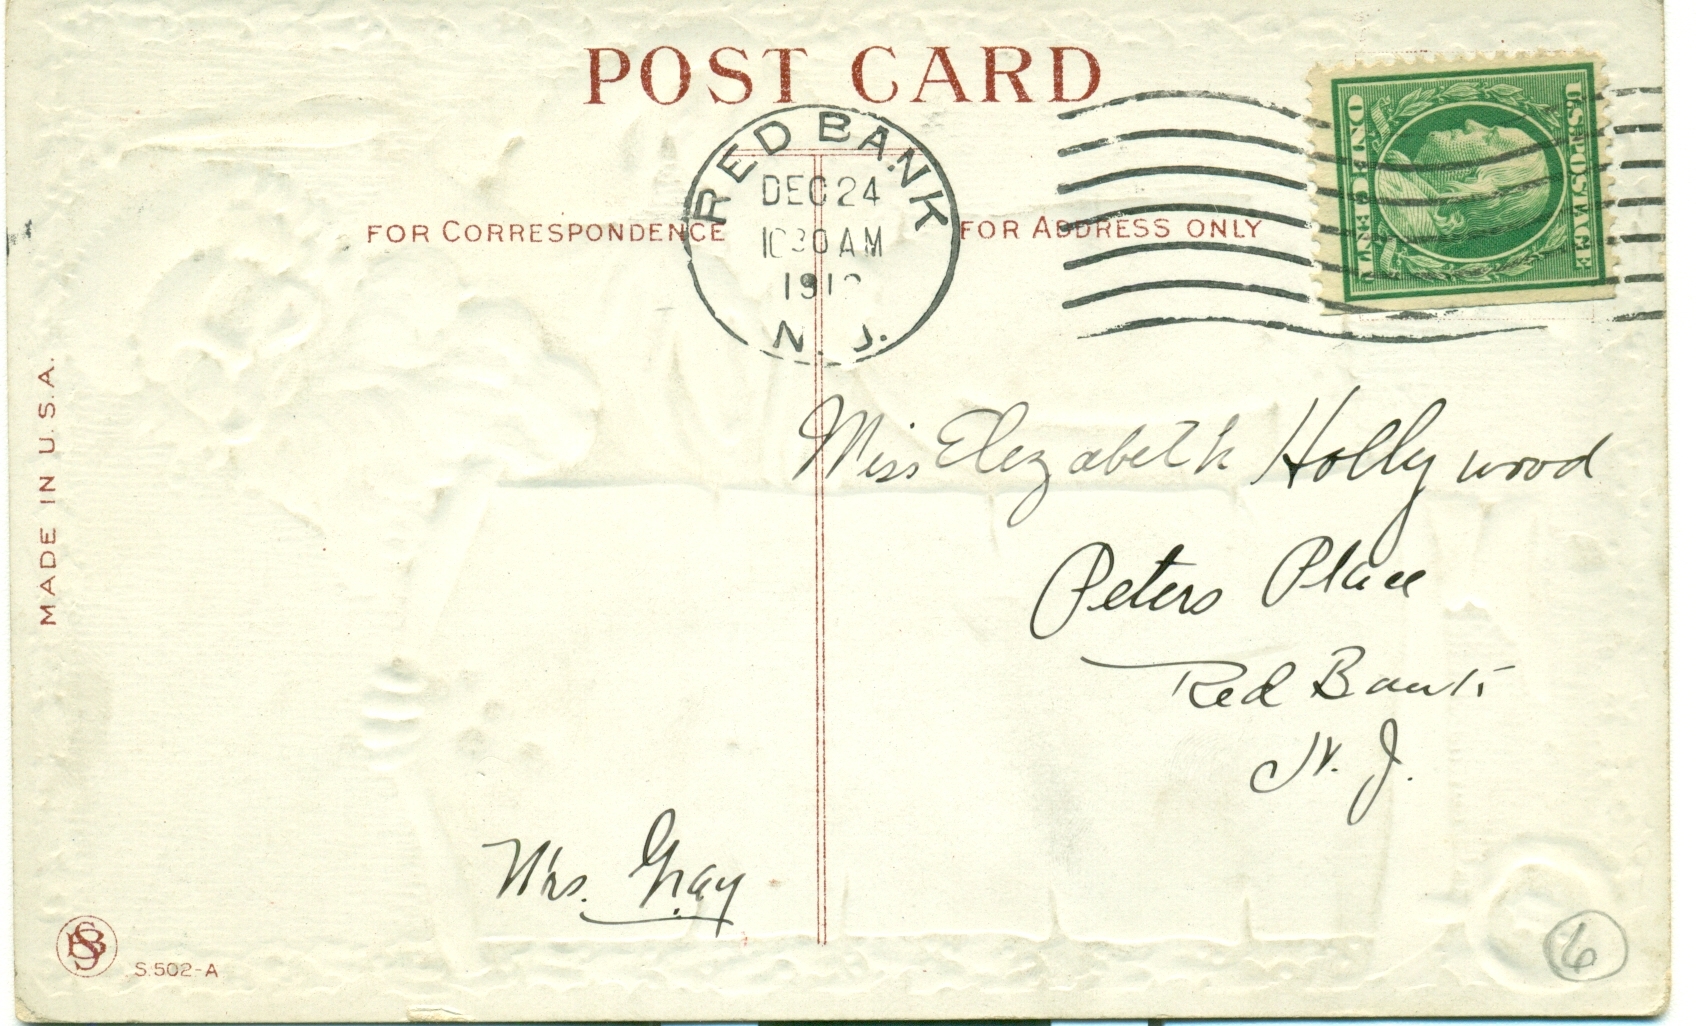 POST CARD
RED BANK
DEC 24
10 30 AM
N. J.
FOR CORRESPONDENCE
FOR ADDRESS ONLY
U.S. POSTAGE
ONE CENT
Miss Elizabeth Hollywood
Peters Place
Red Bank
N. J.
Mrs. Gray
MADE IN U.S.A.
S.502-A
6